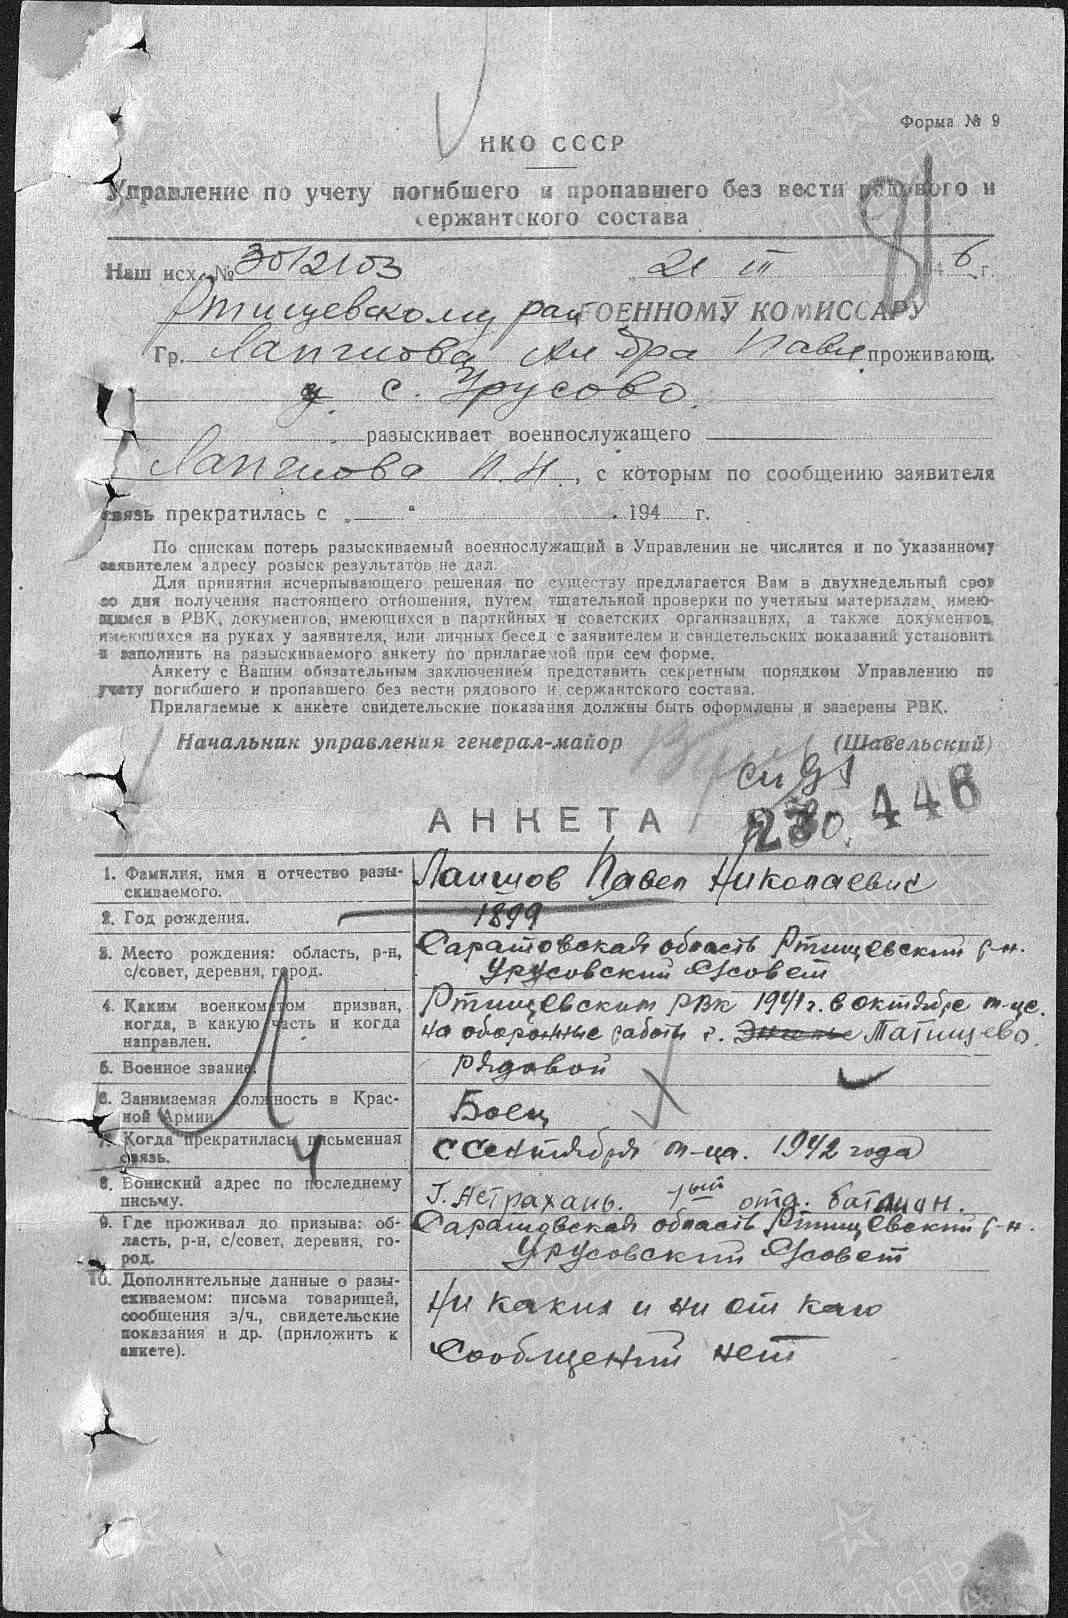 Форма № 9
НКО СССР
Управление по учету погибшего и пропавшего без вести рядового и
сержантского состава
Наш исх. № 3012103 21 III 1946 г.
Ртищевскому рай ВОЕННОМУ КОМИССАРУ
Гр. Лапшова Ал дра Павл проживающ.
с. Урусово.
разыскивает военнослужащего
Лапшова П. Н., с которым по сообщению заявителя
связь прекратилась с „ “ 194 г.
По спискам потерь разыскиваемый военнослужащий в Управлении не числится и по указанному
заявителем адресу розыск результатов не дал.
Для принятия исчерпывающего решения по существу предлагается Вам в двухнедельный срок
со дня получения настоящего отношения, путем тщательной проверки по учетным материалам, имею-
щимся в РВК, документов, имеющихся в партийных и советских организациях, а также документов,
имеющихся на руках у заявителя, или личных бесед с заявителем и свидетельских показаний установить
и заполнить на разыскиваемого анкету по прилагаемой при сем форме.
Анкету с Вашим обязательным заключением представить секретным порядком Управлению по
учету погибшего и пропавшего без вести рядового и сержантского состава.
Прилагаемые к анкете свидетельские показания должны быть оформлены и заверены РВК.
Начальник управления генерал-майор (Шавельский)
446
АНКЕТА
1. Фамилия, имя и отчество разы-
скиваемого.
Лапшов Павел Николаевич
2. Год рождения.
1899
3. Место рождения: область, р-н,
с/совет, деревня, город.
Саратовская область Ртищевский р-н.
Урусовский С/совет
4. Каким военкоматом призван,
когда, в какую часть и когда
направлен.
Ртищевским РВК 1941 г. в октябре м-це.
на оборонные работы г. Матищево.
5. Военное звание.
Рядовой
6. Занимаемая должность в Крас-
ной Армии
Боец
7. Когда прекратилась письменная
связь.
С Сентября м-ца. 1942 года
8. Воинский адрес по последнему
письму.
Г. Астрахань. 1ый отд. батальон.
9. Где проживал до призыва: об-
ласть, р-н, с/совет, деревня, го-
род.
Саратовская область Ртищевский р-н.
Урусовский С/совет
10. Дополнительные данные о разы-
скиваемом: письма товарищей,
сообщения в/ч., свидетельские
показания и др. (приложить к
анкете).
Ни каких и ни от каго
Сообщений нет